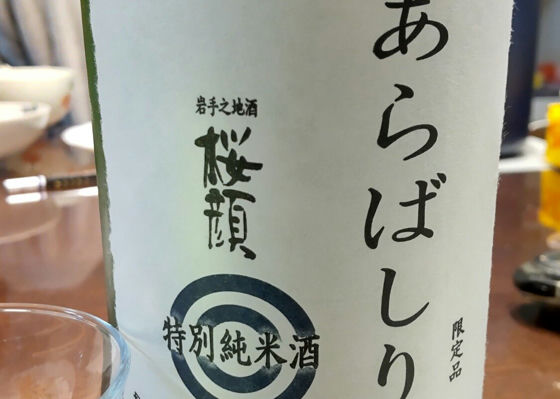 あらばしり
限定品
岩手之地酒
桜顔
特別純米酒